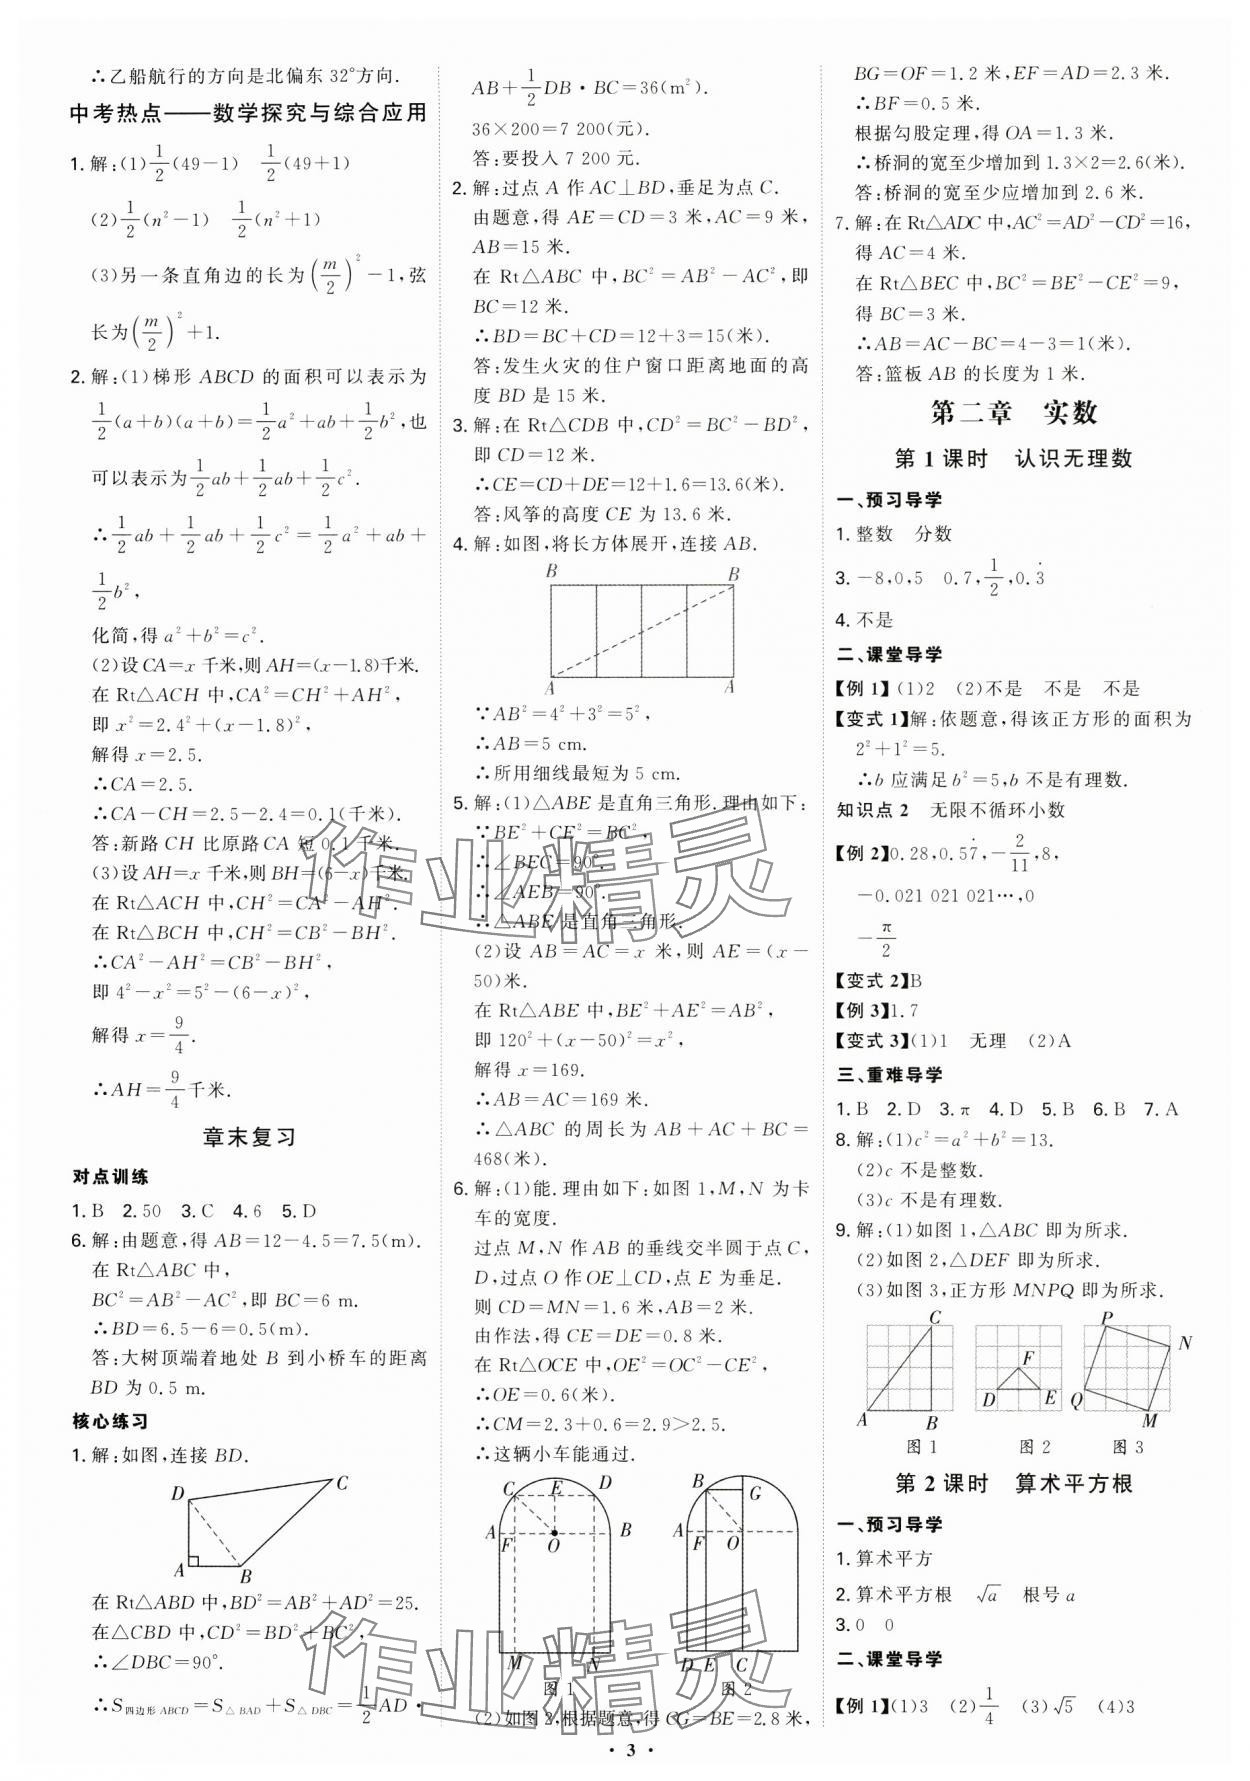 ∴乙船航行的方向是北偏东 32°方向.
中考热点——数学探究与综合应用
1. 解:(1)$\frac{1}{2}$(49−1)　$\frac{1}{2}$(49+1)
(2)$\frac{1}{2}$(n²−1)　$\frac{1}{2}$(n²+1)
(3)另一条直角边的长为$(\frac{m}{2})^2$−1,弦
长为$(\frac{m}{2})^2$+1.
2. 解:(1)梯形 ABCD 的面积可以表示为
$\frac{1}{2}$(a+b)(a+b)=$\frac{1}{2}$a²+ab+$\frac{1}{2}$b²,也
可以表示为$\frac{1}{2}$ab+$\frac{1}{2}$ab+$\frac{1}{2}$c².
∴$\frac{1}{2}$ab+$\frac{1}{2}$ab+$\frac{1}{2}$c²=$\frac{1}{2}$a²+ab+
$\frac{1}{2}$b²,
化简,得 a²+b²=c².
(2)设 CA=x 千米,则 AH=(x−1.8)千米.
在 Rt△ACH 中,CA²=CH²+AH²,
即 x²=2.4²+(x−1.8)²,
解得 x=2.5.
∴CA=2.5.
∴CA−CH=2.5−2.4=0.1(千米).
答:新路 CH 比原路 CA 短 0.1 千米.
(3)设 AH=x 千米,则 BH=(6−x)千米.
在 Rt△ACH 中,CH²=CA²−AH².
在 Rt△BCH 中,CH²=CB²−BH².
∴CA²−AH²=CB²−BH²,
即 4²−x²=5²−(6−x)²,
解得 x=$\frac{9}{4}$.
∴AH=$\frac{9}{4}$千米.
章末复习
对点训练
1. B　2. 50　3. C　4. 6　5. D
6. 解:由题意,得 AB=12−4.5=7.5(m).
在 Rt△ABC 中,
BC²=AB²−AC²,即 BC=6 m.
∴BD=6.5−6=0.5(m).
答:大树顶端着地处 B 到小桥车的距离
BD 为 0.5 m.
核心练习
1. 解:如图,连接 BD.
D C A B
在 Rt△ABD 中,BD²=AB²+AD²=25.
在△CBD 中,CD²=BD²+BC².
∴∠DBC=90°.
∴S四边形 ABCD=S△BAD+S△DBC=$\frac{1}{2}$AD·
AB+$\frac{1}{2}$DB·BC=36(m²).
36×200=7 200(元).
答:要投入 7 200 元.
2. 解:过点 A 作 AC⊥BD,垂足为点 C.
由题意,得 AE=CD=3 米,AC=9 米,
AB=15 米.
在 Rt△ABC 中,BC²=AB²−AC²,即
BC=12 米.
∴BD=BC+CD=12+3=15(米).
答:发生火灾的住户窗口距离地面的高
度 BD 是 15 米.
3. 解:在 Rt△CDB 中,CD²=BC²−BD²,
即 CD=12 米.
∴CE=CD+DE=12+1.6=13.6(米).
答:风筝的高度 CE 为 13.6 米.
4. 解:如图,将长方体展开,连接 AB.
B B
A A
∵AB²=4²+3²=5²,
∴AB=5 cm.
∴所用细线最短为 5 cm.
5. 解:(1)△ABE 是直角三角形.理由如下:
∵BE²+CE²=BC²,
∴∠BEC=90°.
∴∠AEB=90°.
∴△ABE 是直角三角形.
(2)设 AB=AC=x 米,则 AE=(x−
50)米.
在 Rt△ABE 中,BE²+AE²=AB²,
即 120²+(x−50)²=x²,
解得 x=169.
∴AB=AC=169 米.
∴△ABC 的周长为 AB+AC+BC=
468(米).
6. 解:(1)能.理由如下:如图 1,M,N 为卡
车的宽度.
过点 M,N 作 AB 的垂线交半圆于点 C,
D,过点 O 作 OE⊥CD,点 E 为垂足.
则 CD=MN=1.6 米,AB=2 米.
由作法,得 CE=DE=0.8 米.
在 Rt△OCE 中,OE²=OC²−CE²,
∴OE=0.6(米).
∴CM=2.3+0.6=2.9>2.5.
∴这辆小车能通过.
C E D A F O B M N
B G A F O D E C
图 1　图 2
(2)如图 2,根据题意,得 CG=BE=2.8 米,
BG=OF=1.2 米,EF=AD=2.3 米.
∴BF=0.5 米.
根据勾股定理,得 OA=1.3 米.
∴桥洞的宽至少增加到 1.3×2=2.6(米).
答:桥洞的宽至少应增加到 2.6 米.
7. 解:在 Rt△ADC 中,AC²=AD²−CD²=16,
得 AC=4 米.
在 Rt△BEC 中,BC²=BE²−CE²=9,
得 BC=3 米.
∴AB=AC−BC=4−3=1(米).
答:篮板 AB 的长度为 1 米.
第二章　实数
第 1 课时　认识无理数
一、预习导学
1. 整数　分数
3. −8,0,5　0.7,$\frac{1}{2}$,0.$\dot{3}$
4. 不是
二、课堂导学
【例 1】(1)2　(2)不是　不是　不是
【变式 1】解:依题意,得该正方形的面积为
2²+1²=5.
∴b 应满足 b²=5,b 不是有理数.
知识点 2　无限不循环小数
【例 2】0.28,0.$\dot{5}\dot{7}$,−$\frac{2}{11}$,8,
−0.021 021 021…,0
−$\frac{π}{2}$
【变式 2】B
【例 3】1.7
【变式 3】(1)1　无理　(2)A
三、重难导学
1. B　2. D　3. π　4. D　5. B　6. B　7. A
8. 解:(1)c²=a²+b²=13.
(2)c 不是整数.
(3)c 不是有理数.
9. 解:(1)如图 1,△ABC 即为所求.
(2)如图 2,△DEF 即为所求.
(3)如图 3,正方形 MNPQ 即为所求.
C A B
F D E
P N Q M
图 1　图 2　图 3
第 2 课时　算术平方根
一、预习导学
1. 算术平方
2. 算术平方根　$\sqrt{a}$　根号 a
3. 0　0
二、课堂导学
【例 1】(1)3　(2)$\frac{1}{4}$　(3)$\sqrt{5}$　(4)3
· 3 ·
作业精灵
作业精灵